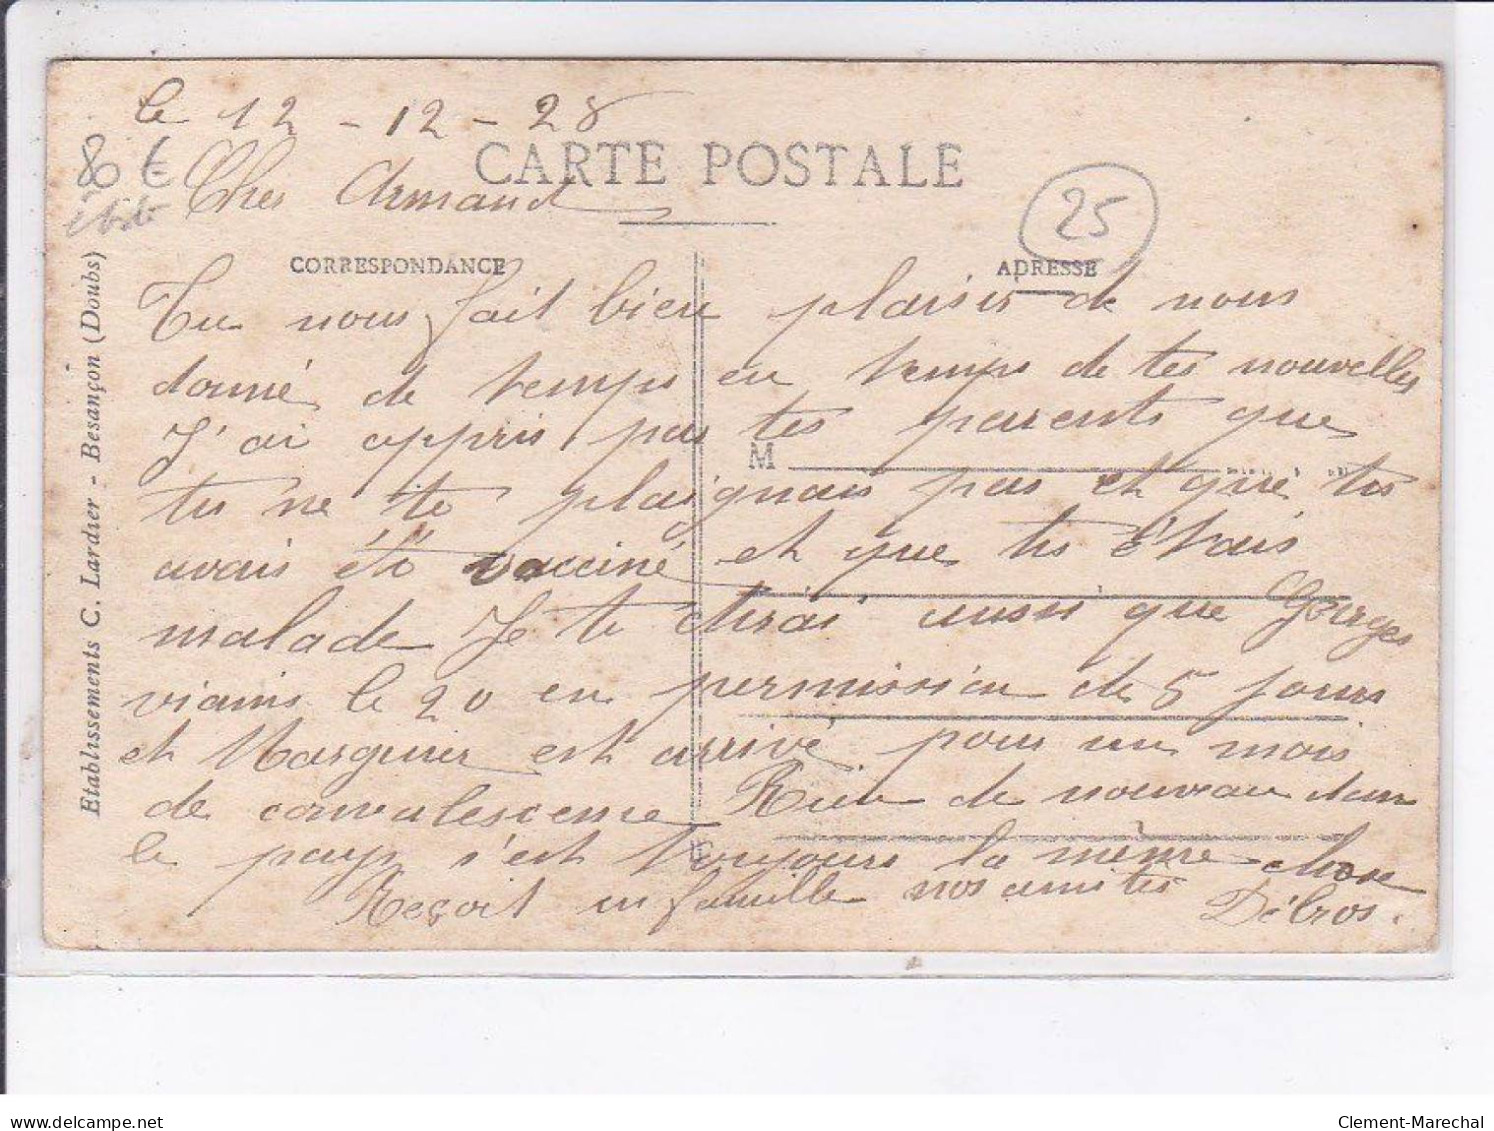 le 12 - 12 - 28
80 €
CARTE POSTALE
Cher Armand
25
CORRESPONDANCE
ADRESSE
Tu nous fait bien plaisir de nous
donné de temps en temps de tes nouvelles
J'ai appris pas tes parents que
M
tu ne te plaignais pas et que tu
avais été vacciné et que tu étais
malade Je te dirai aussi que Georges
viains le 20 en permission de 5 jours
et Marguier est arrivé pour un mois
de convalescence Rien de nouveau dans
le pays s'est toujours la même chose
Reçoit en famille nos amitiés Débros.
Etablissements C. Lardier - Besançon (Doubs)
Clement-Marechal
delcampe.net